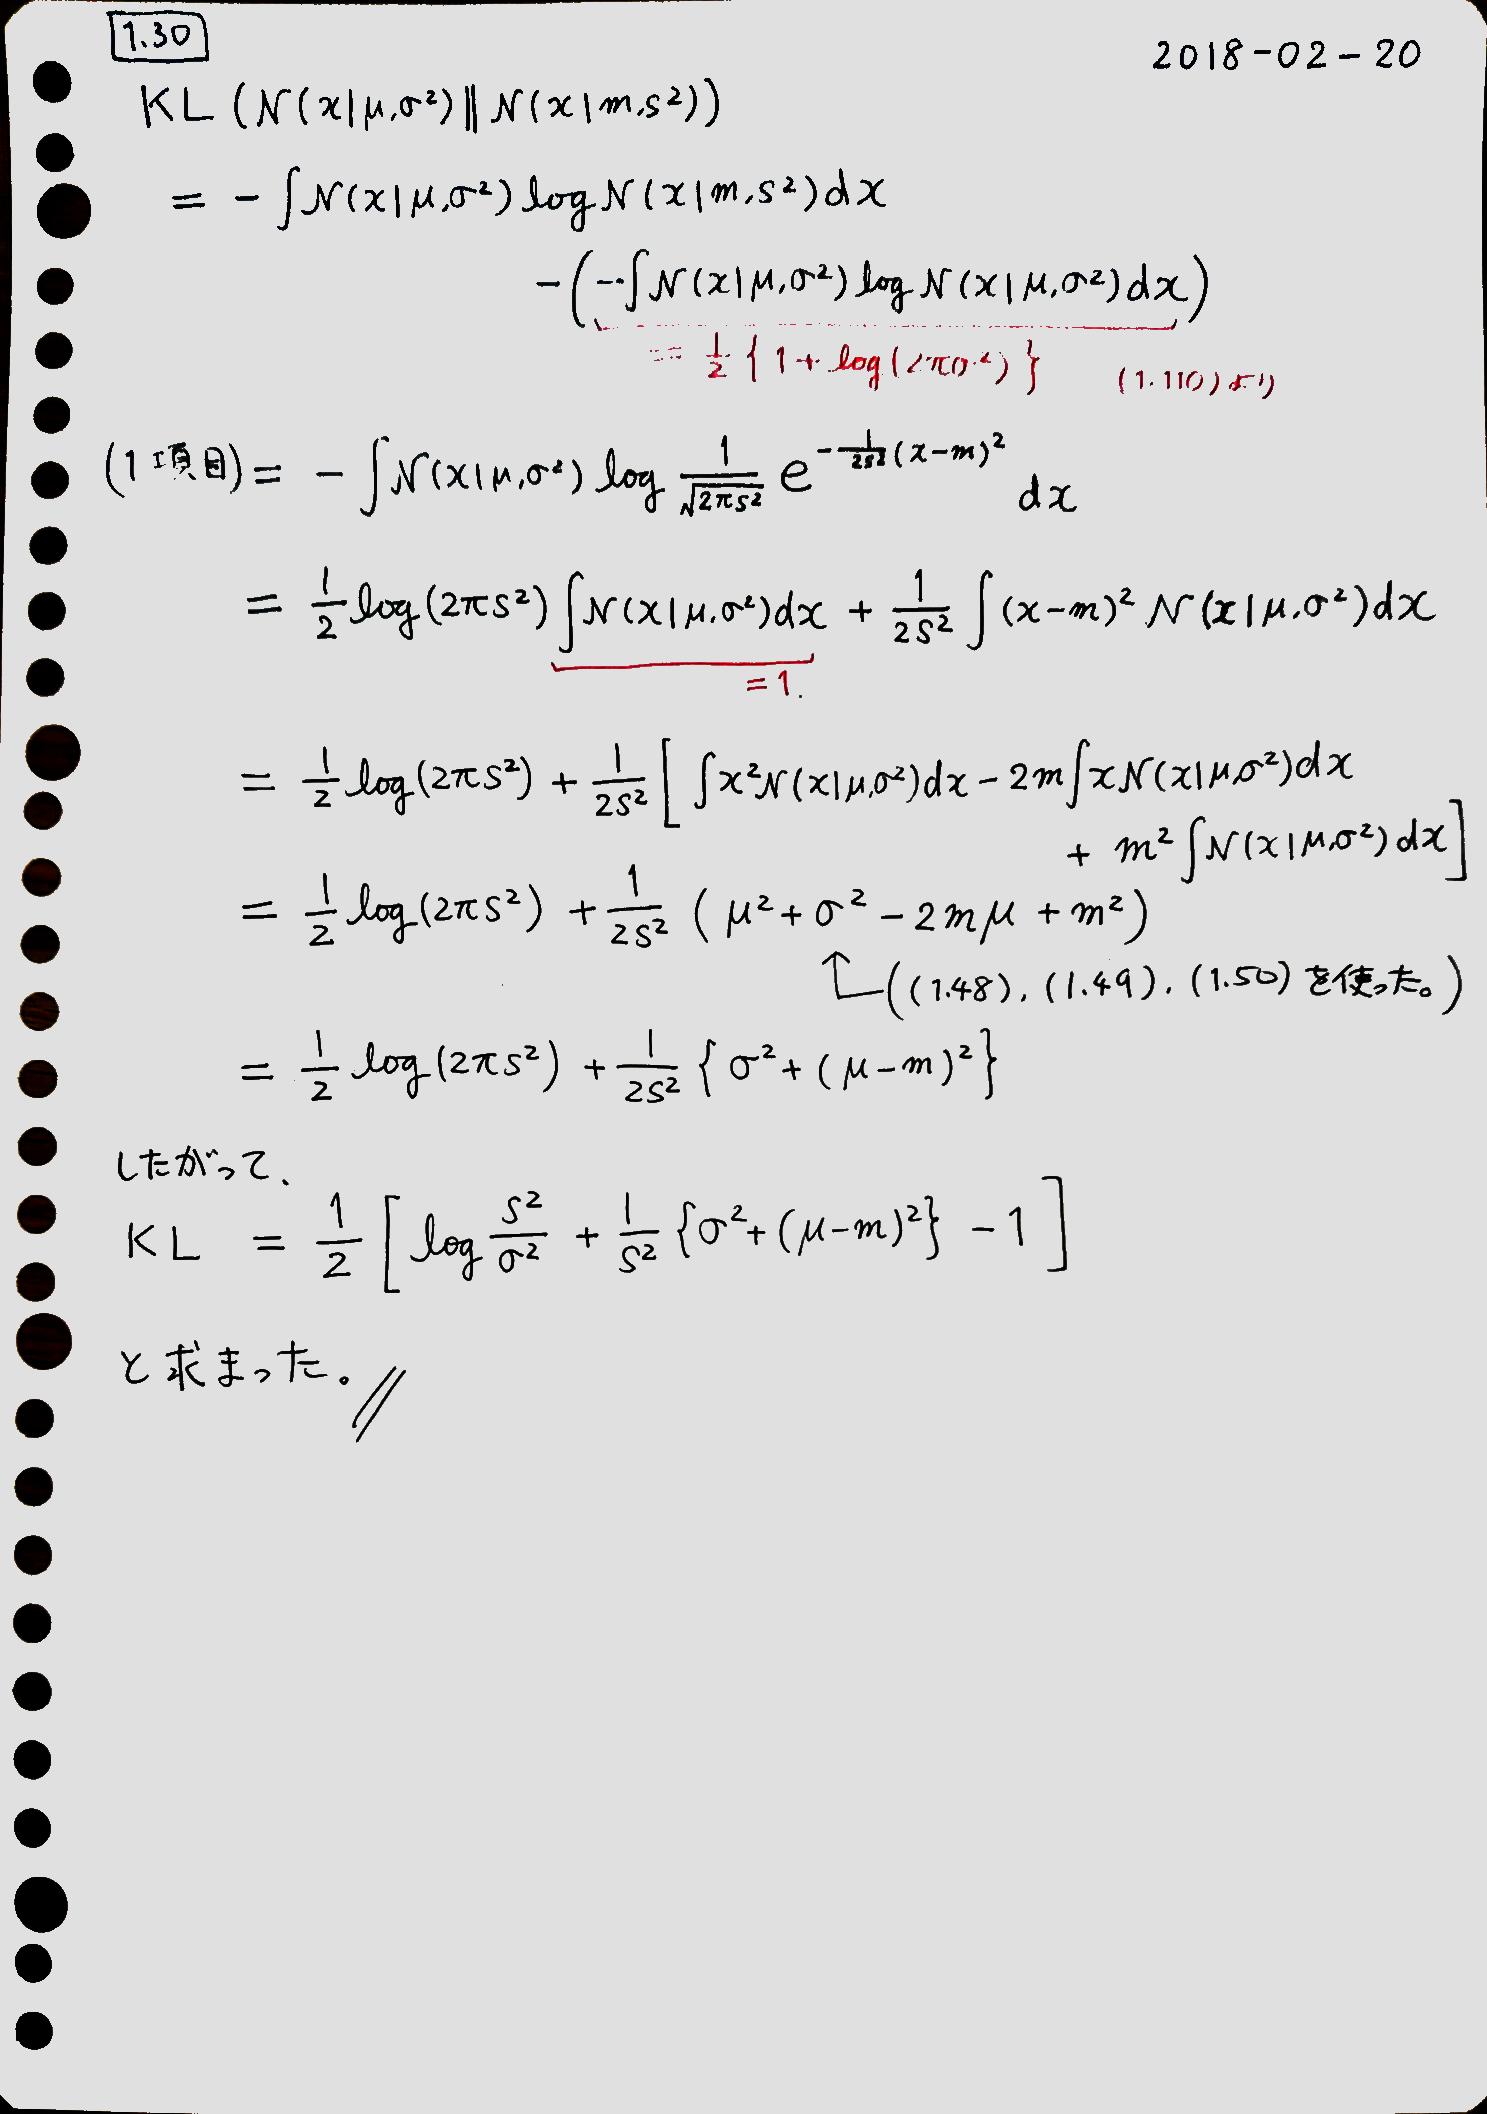 1.30
2018-02-20
KL (N(x|μ,σ²)‖N(x|m,s²))
= -∫N(x|μ,σ²) log N(x|m,s²)dx
-(-∫N(x|μ,σ²) log N(x|μ,σ²)dx)
= 1/2 {1 + log(2πσ²)} (1.110)より
(1項目) = -∫N(x|μ,σ²) log 1/√(2πs²) e^{-1/(2s²) (x-m)²} dx
= 1/2 log(2πs²) ∫N(x|μ,σ²)dx + 1/(2s²) ∫(x-m)² N(x|μ,σ²)dx
= 1.
= 1/2 log(2πs²) + 1/(2s²) [∫x²N(x|μ,σ²)dx - 2m∫xN(x|μ,σ²)dx
+ m²∫N(x|μ,σ²)dx]
= 1/2 log(2πs²) + 1/(2s²) (μ²+σ²-2mμ+m²)
((1.48), (1.49), (1.50)を使った。)
= 1/2 log(2πs²) + 1/(2s²) {σ²+(μ-m)²}
したがって、
KL = 1/2 [log s²/σ² + 1/s² {σ²+(μ-m)²} - 1]
と求まった。//